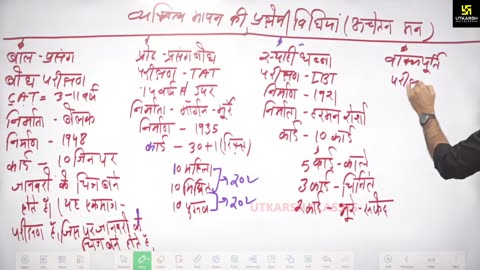 व्यक्तित्व मापन की प्रक्षेपी विधियां (अचेतन मन)
UTKARSH
CLASSES
बाल-प्रसंग
बोध परीक्षण
CAT = 3-11 वर्ष
निर्माता-
निर्माण - 1948
कार्ड - 10 जिन पर
जानवरों के चित्र बने
होते हैं। यह एकमात्र-
परीक्षण है, जिस पर जानवरों के
चित्र बने होते हैं,
प्रौढ़ प्रसंग बोध
परीक्षण - TAT
14 वर्ष से उपर
निर्माता - मॉर्गन-मूर्रे
निर्माण - 1935
कार्ड - 30+1 (रिक्त)
10 महिला
10 मिश्रित
10 पुरुष
20L
20L
स्याही धब्बा
परीक्षण - IBT
निर्माण - 1921
निर्माता - हरमन रोर्शा
कार्ड - 10 कार्ड
5 कार्ड - काले
3 कार्ड - चित्रित
2 कार्ड भूरे-सफेद
वाक्यपूर्ति
UTKARSH CLASSES